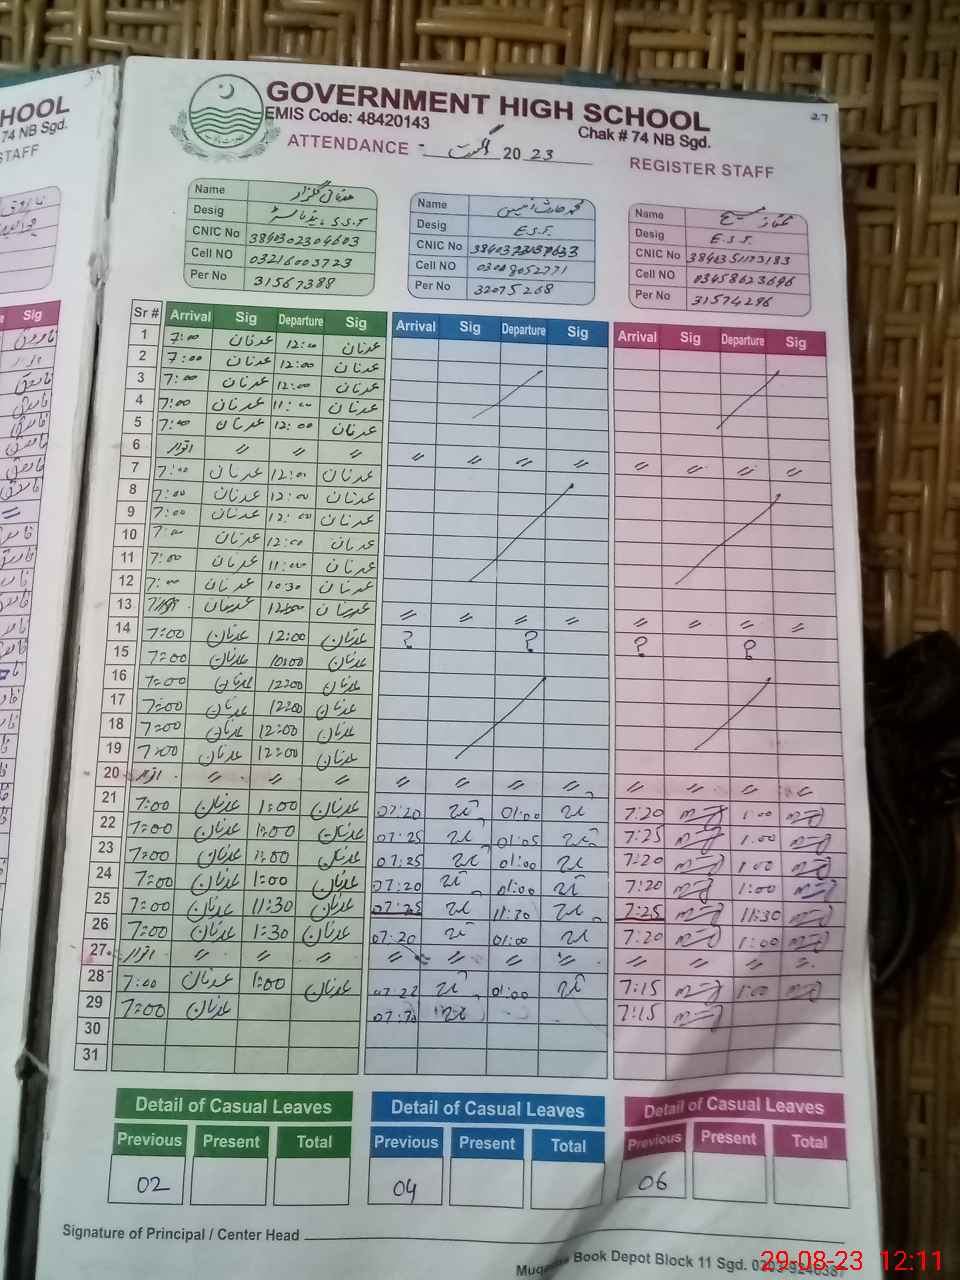 GOVERNMENT HIGH SCHOOL
EMIS Code: 48420143 Chak # 74 NB Sgd.
ATTENDANCE - اگست 2023 REGISTER STAFF
27
HOOL
74 NB Sgd.
STAFF
Sig
Name عدنان گلزار
Desig S.S.T
CNIC No 3840302304603
Cell NO 03216003723
Per No 31567388
Name محمد حارث
Desig E.S.T.
CNIC No
Cell NO 03008052771
Per No 32075268
Name مسیح
Desig E.S.T.
CNIC No 3840351173183
Cell NO 03458623696
Per No 31574296
Sr # Arrival Sig Departure Sig Arrival Sig Departure Sig Arrival Sig Departure Sig
1 7:00 عدنان 12:00 عدنان
2 7:00 عدنان 12:00 عدنان
3 7:00 عدنان 12:00 عدنان
4 7:00 عدنان 11:00 عدنان
5 7:00 عدنان 12:00 عدنان
6 اتوار 〃 〃 〃 〃 〃 〃 〃 〃 〃 〃 〃
7 7:00 عدنان 12:00 عدنان
8 7:00 عدنان 12:00 عدنان
9 7:00 عدنان 12:00 عدنان
10 7:00 عدنان 12:00 عدنان
11 7:00 عدنان 11:00 عدنان
12 7:00 عدنان 10:30 عدنان
13 اتوار عدنان عدنان 〃 〃 〃 〃 〃 〃 〃 〃
14 7:00 عدنان 12:00 عدنان ? ? ? ?
15 7:00 عدنان 10:00 عدنان
16 7:00 عدنان 12:00 عدنان
17 7:00 عدنان 12:00 عدنان
18 7:00 عدنان 12:00 عدنان
19 7:00 عدنان 12:00 عدنان
20 اتوار 〃 〃 〃 〃 〃 〃 〃 〃 〃 〃 〃
21 7:00 عدنان 1:00 عدنان 07:20 01:00 7:20 1:00
22 7:00 عدنان 1:00 عدنان 07:25 01:05 7:25 1:00
23 7:00 عدنان 1:00 عدنان 07:25 01:00 7:20 1:00
24 7:00 عدنان 1:00 عدنان 07:20 01:00 7:20 1:00
25 7:00 عدنان 11:30 عدنان 07:25 11:30 7:25 11:30
26 7:00 عدنان 1:30 عدنان 07:20 01:00 7:20 1:00
27 اتوار 〃 〃 〃 〃 〃 〃 〃 〃 〃 〃 〃
28 7:00 عدنان 1:00 عدنان 07:22 01:00 7:15 1:00
29 7:00 عدنان 7:15
30
31
Detail of Casual Leaves Detail of Casual Leaves Detail of Casual Leaves
Previous Present Total Previous Present Total Previous Present Total
02 04 06
Signature of Principal / Center Head
Book Depot Block 11 Sgd.
29-08-23 12:11